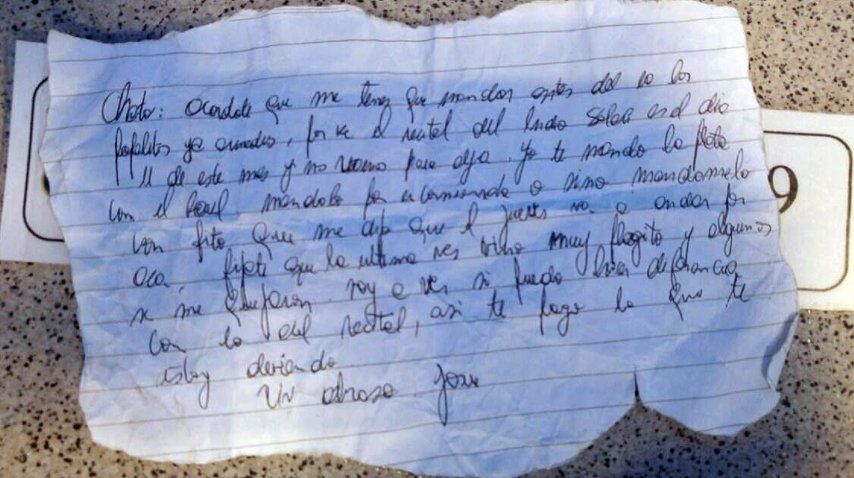 Choto: acordate que me tenes que mandar antes del 10 los
papelitos ya armados, por ke el recital del Indio Solari es el dia
11 de este mes y no vamos para aya. Yo te mando la plata
con el Raul. mandalo por encomienda o sino mandamelo
con fito que me dijo que el jueves va a andar por
aca. fijate que la ultima ves vino muy flogito y algunos
se me quejaron. voy a ver si puedo hacer diferencia
con lo del recital, asi te pago lo que te
estoy deviendo
Un abraso Jose
9